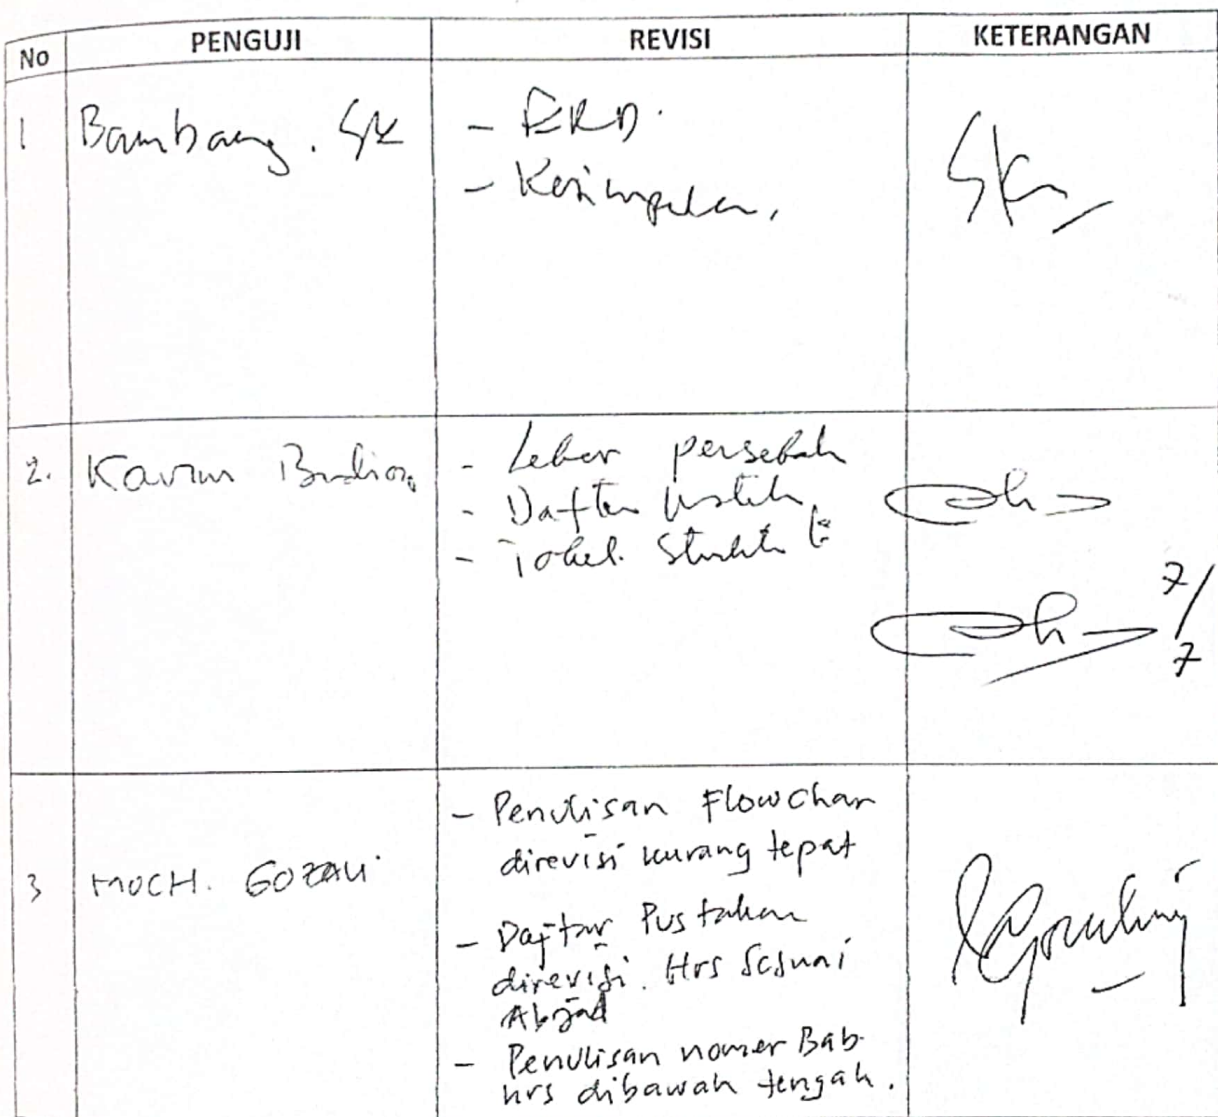 No PENGUJI REVISI KETERANGAN
1 Bambang. SK
- ERD.
- Kesimpulan.
2. Karim
- Daftar
- Tabel.
7/7
3 MOCH. GOZALI
- Penulisan Flowchar
direvisi kurang tepat
- Daftar Pustakan
direvisi. Hrs Sesuai
Abjad
- Penulisan nomer Bab
hrs dibawah tengah.